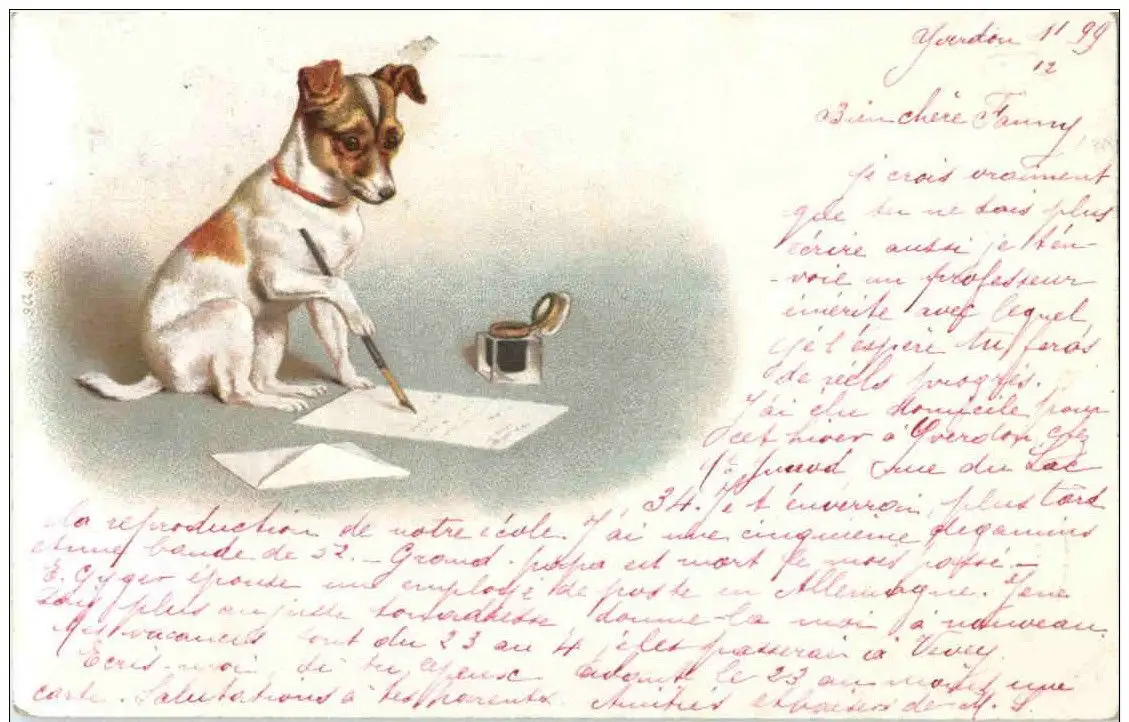 Yverdon 11 99
12
Bien chère Fanny,
je crois vraiment
que tu ne sais plus
écrire aussi je t'en-
-voie un professeur
émérite avec lequel
je l'espère tu feras
de réels progrès.
J'ai élu domicile pour
cet hiver à Yverdon, chez
rue du Lac
34. Je t'enverrai plus tard
la reproduction de notre école. J'ai une cinquième de gamins
une bande de 52. - Grand-papa est mort le mois passé. -
E. Gyger épouse un employé de poste en Allemagne. Je ne
sais plus au juste ton adresse donne-la moi à nouveau.
Mes vacances sont du 23 au 4 je les passerai à Vevey.
Ecris-moi si tu peux avant le 23 au moins une
carte. Salutations à tes parents. Amitiés et baisers de M. G.
No 226